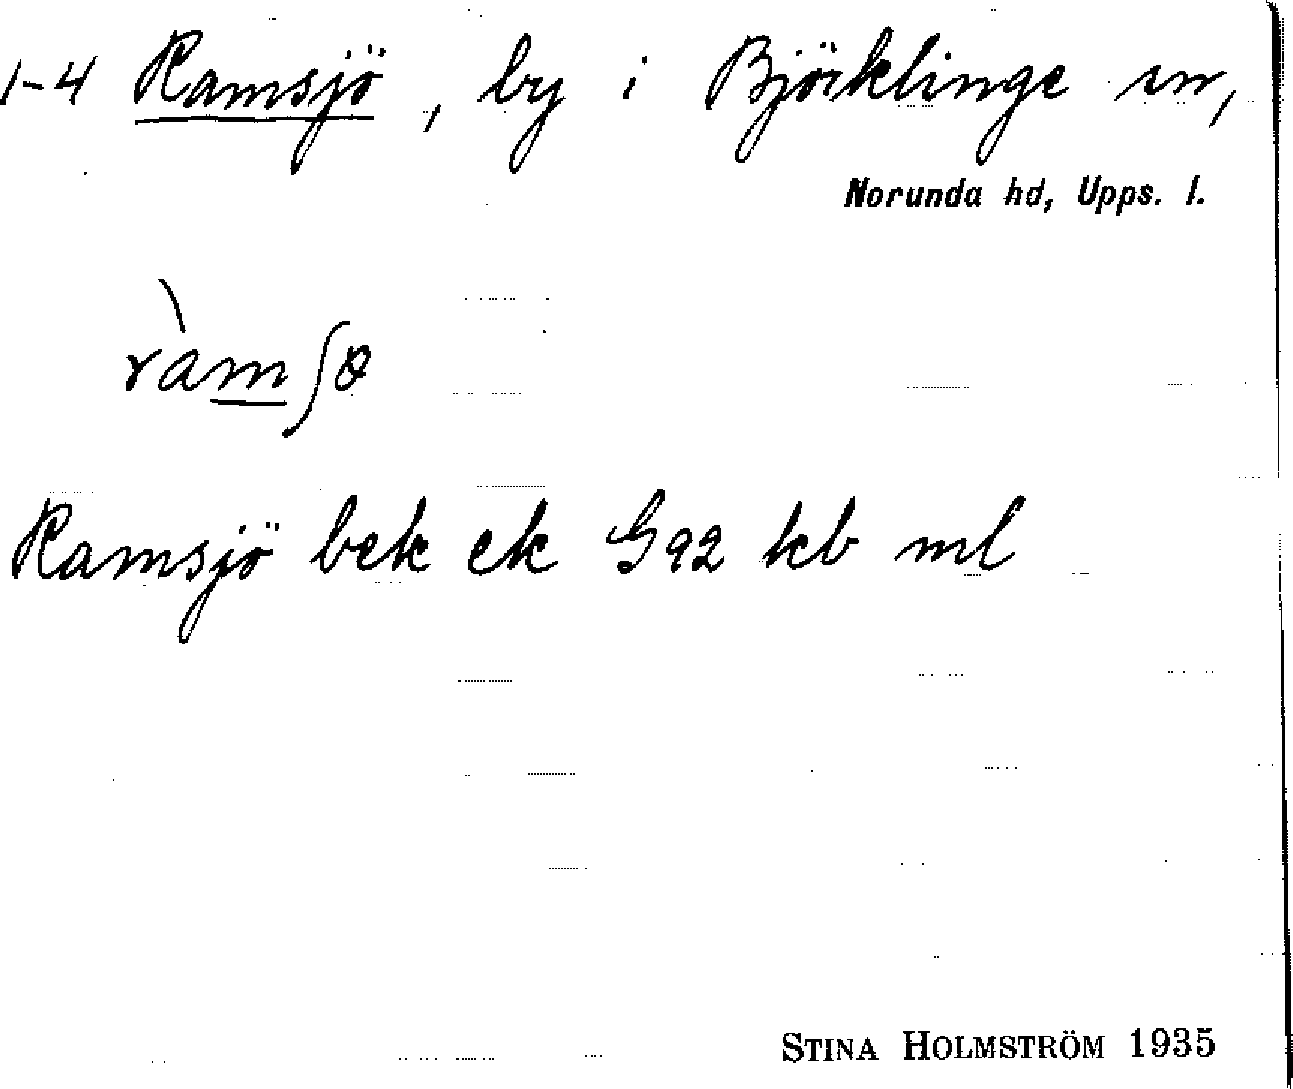 1-4 Ramsjö, by i Björklinge sn,
Norunda hd, Upps. l.
ràmʃø
Ramsjö bek ek G92 kb ml
STINA HOLMSTRÖM 1935